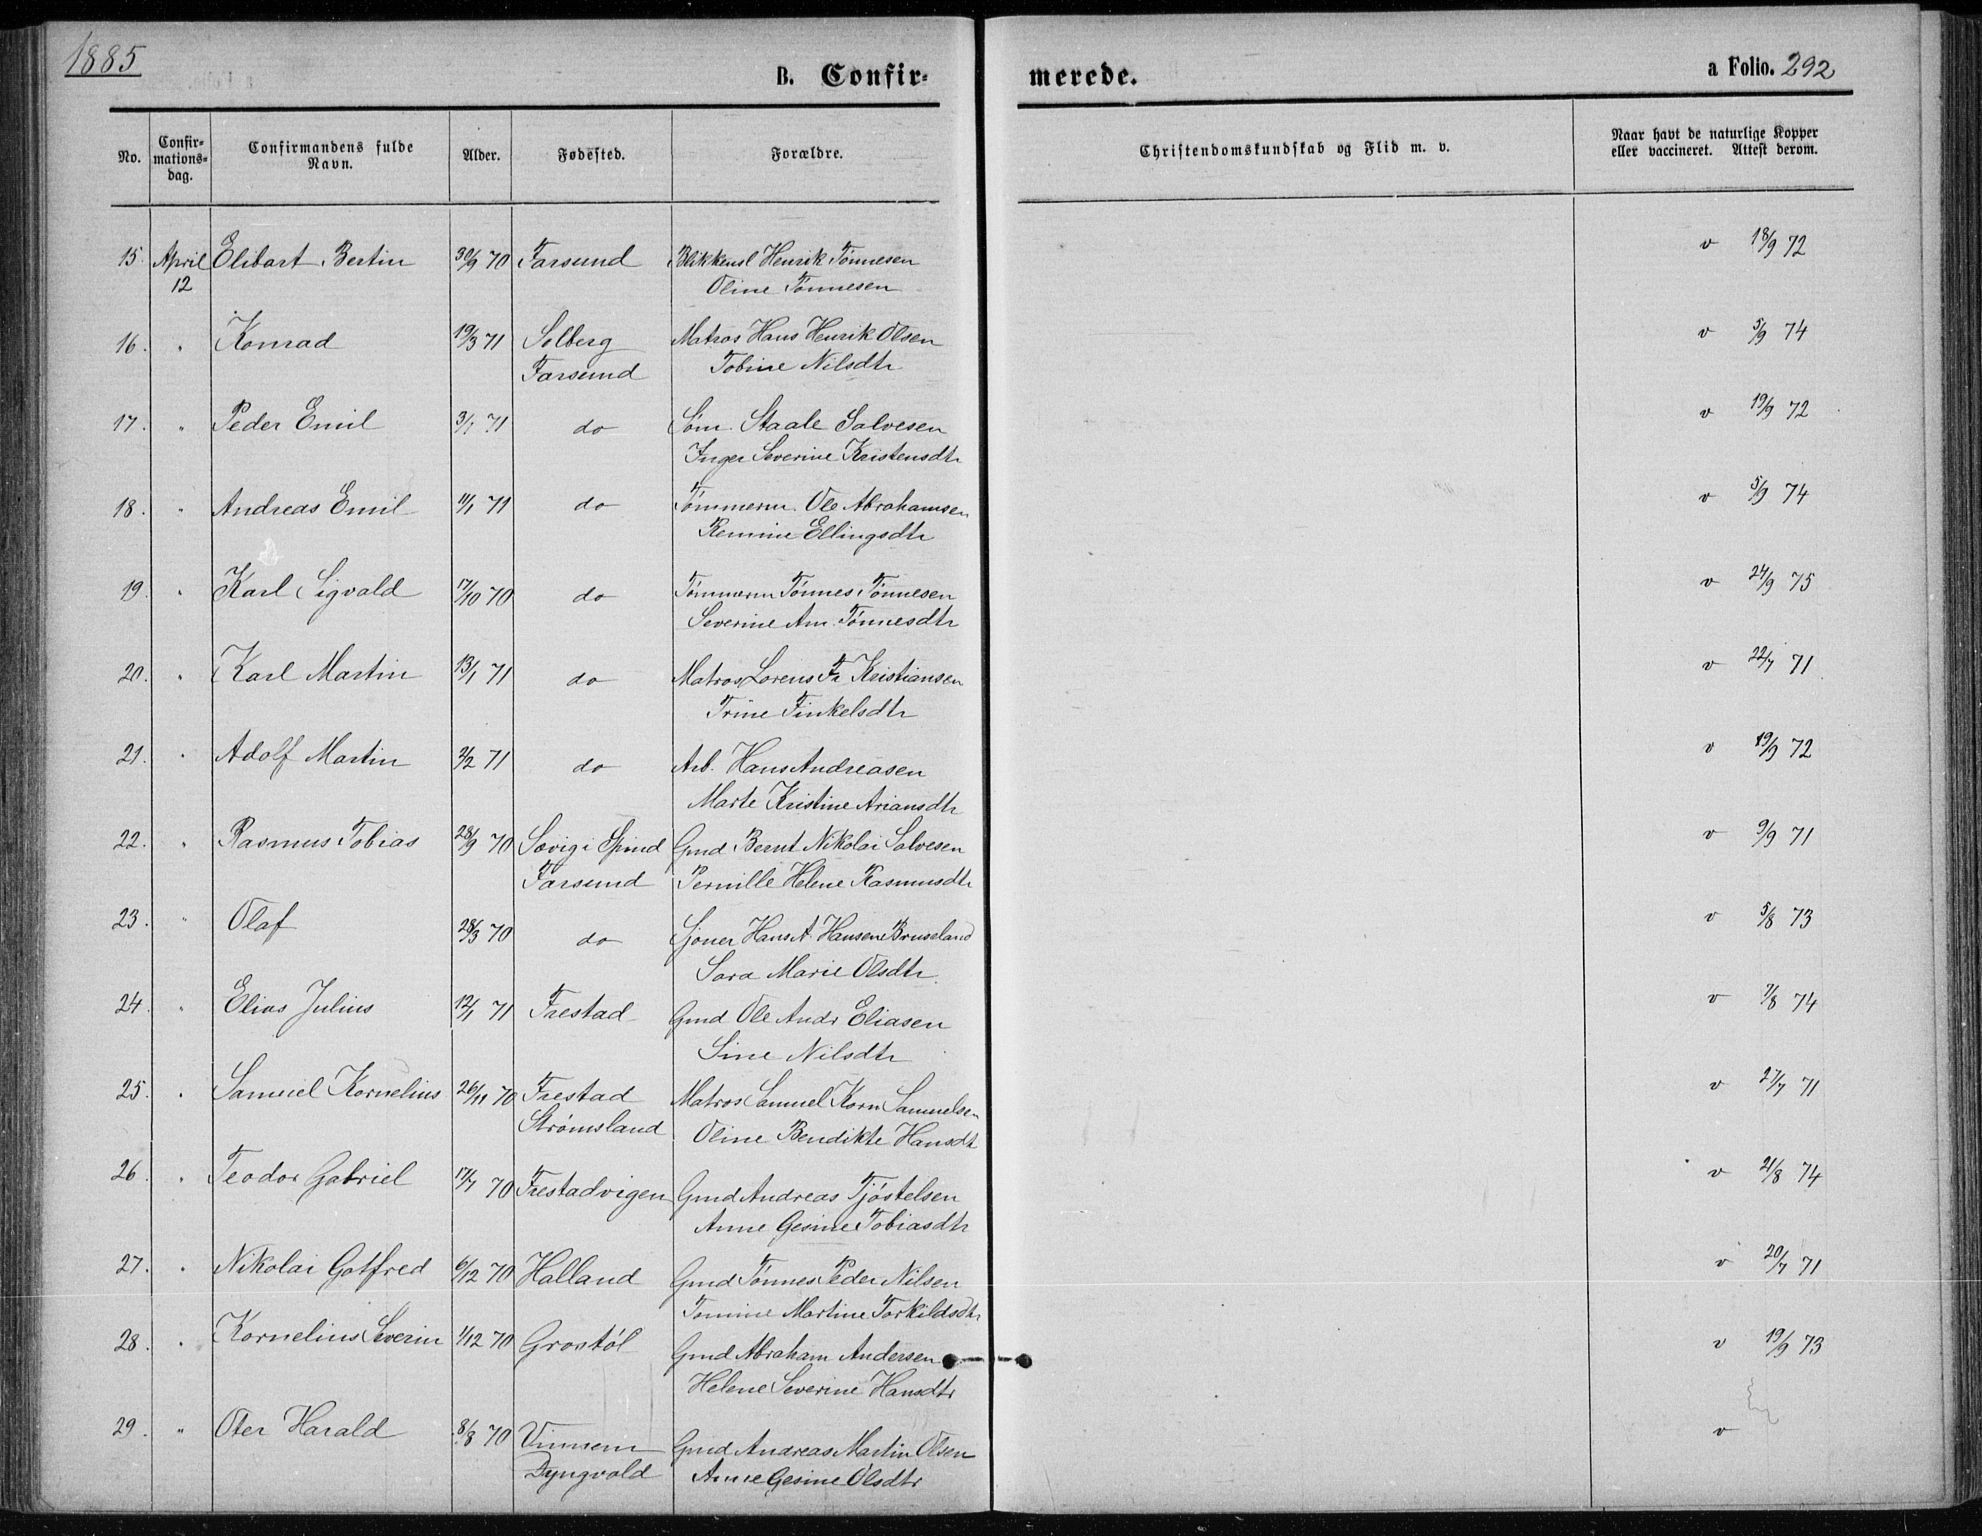 1885
B. Confir-
merede.
a Folio. 292
No.
Confir-
mations-
dag.
Confirmandens fulde
Navn.
Alder.
Fødested.
Forældre.
Christendomskundskab og Flid m. v.
Naar havt de naturlige Kopper
eller vaccineret. Attest derom.
15. April Elibart Bertin 30/9 70 Farsund Blikkensl Henrik Tønnesen v 18/9 72
12 Oline Tønnesen
16. " Konrad 19/3 71 Solberg Matros Hans Henrik Olsen v 5/9 74
Farsund Tobine Nilsdtr
17. " Peder Emil 3/1 71 do Søm. Staale Salvesen v 19/9 72
Inger Severine Kristensdtr
18. " Andreas Emil 11/1 71 do Tømmerm. Ole Abrahamsen v 5/9 74
Remine Ellingsdtr
19. " Karl Sigvald 17/10 70 do Tømmerm Tønnes Tønnesen v 24/9 75
Severine Am. Tønnesdtr
20. " Karl Martin 13/1 71 do Matros Lorens Fr Kristiansen v 22/7 71
Trine Finkelsdtr
21. " Adolf Martin 2/2 71 do Arb. Hans Andreasen v 19/9 72
Marte Kristine Ariansdtr
22. " Rasmus Tobias 28/9 70 Sævig i Spind Gmd Bernt Nikolai Salvesen v 9/9 71
Farsund Pernille Helene Rasmusdtr
23. " Olaf 28/3 70 do Sjøner Hans A. Hansen Bruseland v 5/8 73
Sara Marie Olsdtr.
24. " Elias Julius 12/1 71 Frestad Gmd Ole Andr Eliasen v 7/8 74
Sine Nilsdtr
25. " Samuel Kornelius 26/11 70 Frestad Matros Samuel Korn Samuelsen v 27/7 71
Strømsland Oline Bendikte Hansdt
26. " Teodor Gabriel 17/7 70 Frestadvigen Gmd Andreas Tjøstelsen v 21/8 74
Anne Gesine Tobiasdtr
27. " Nikolai Gotfred 6/12 70 Halland Gmd Tønnes Peder Nilsen v 20/7 71
Tomine Martine Torkildsdtr
28. " Kornelius Severin 1/12 70 Grostøl Gmd Abraham Andersen v 19/9 73
Helene Severine Hansdtr
29. " Oter Harald 8/8 70 Vinnem Gmd Andreas Martin Olsen v
Dyngvold Anne Gesine Olsdtr